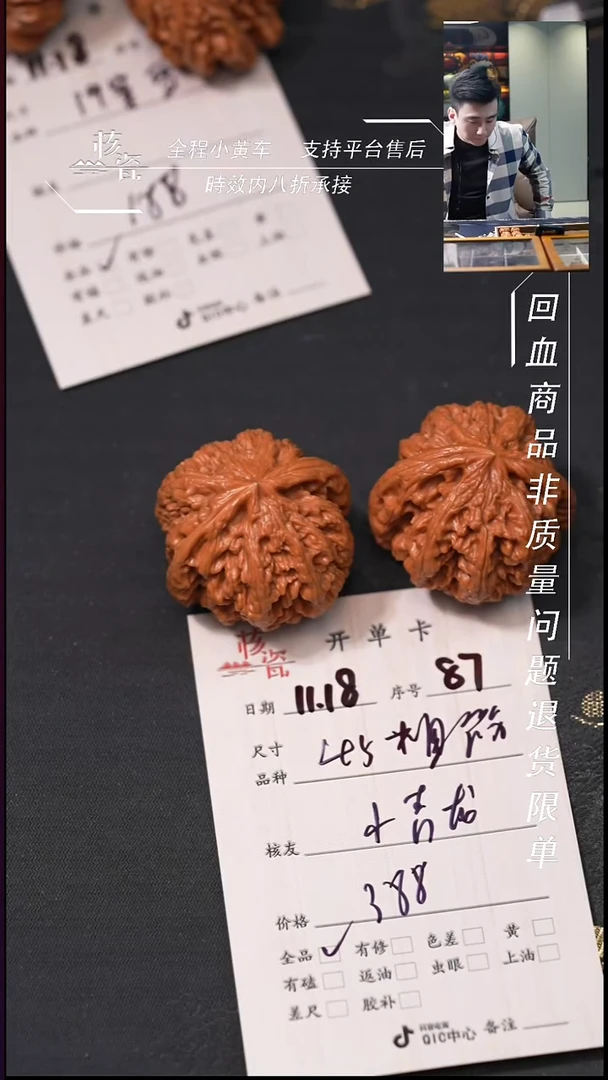 11.18
198
188
核瓷
全程小黄车 支持平台售后
時效内八折承接
QIC中心 备注
回血商品非质量问题退货限单
核瓷 开单卡
日期 11.18 序号 87
尺寸
品种 45
核友 小青龙
价格 388
全品 ✓ 有修 色差 黄
有磕 返油 虫眼 上油
差尺 胶补
抖音电商
QIC中心 备注